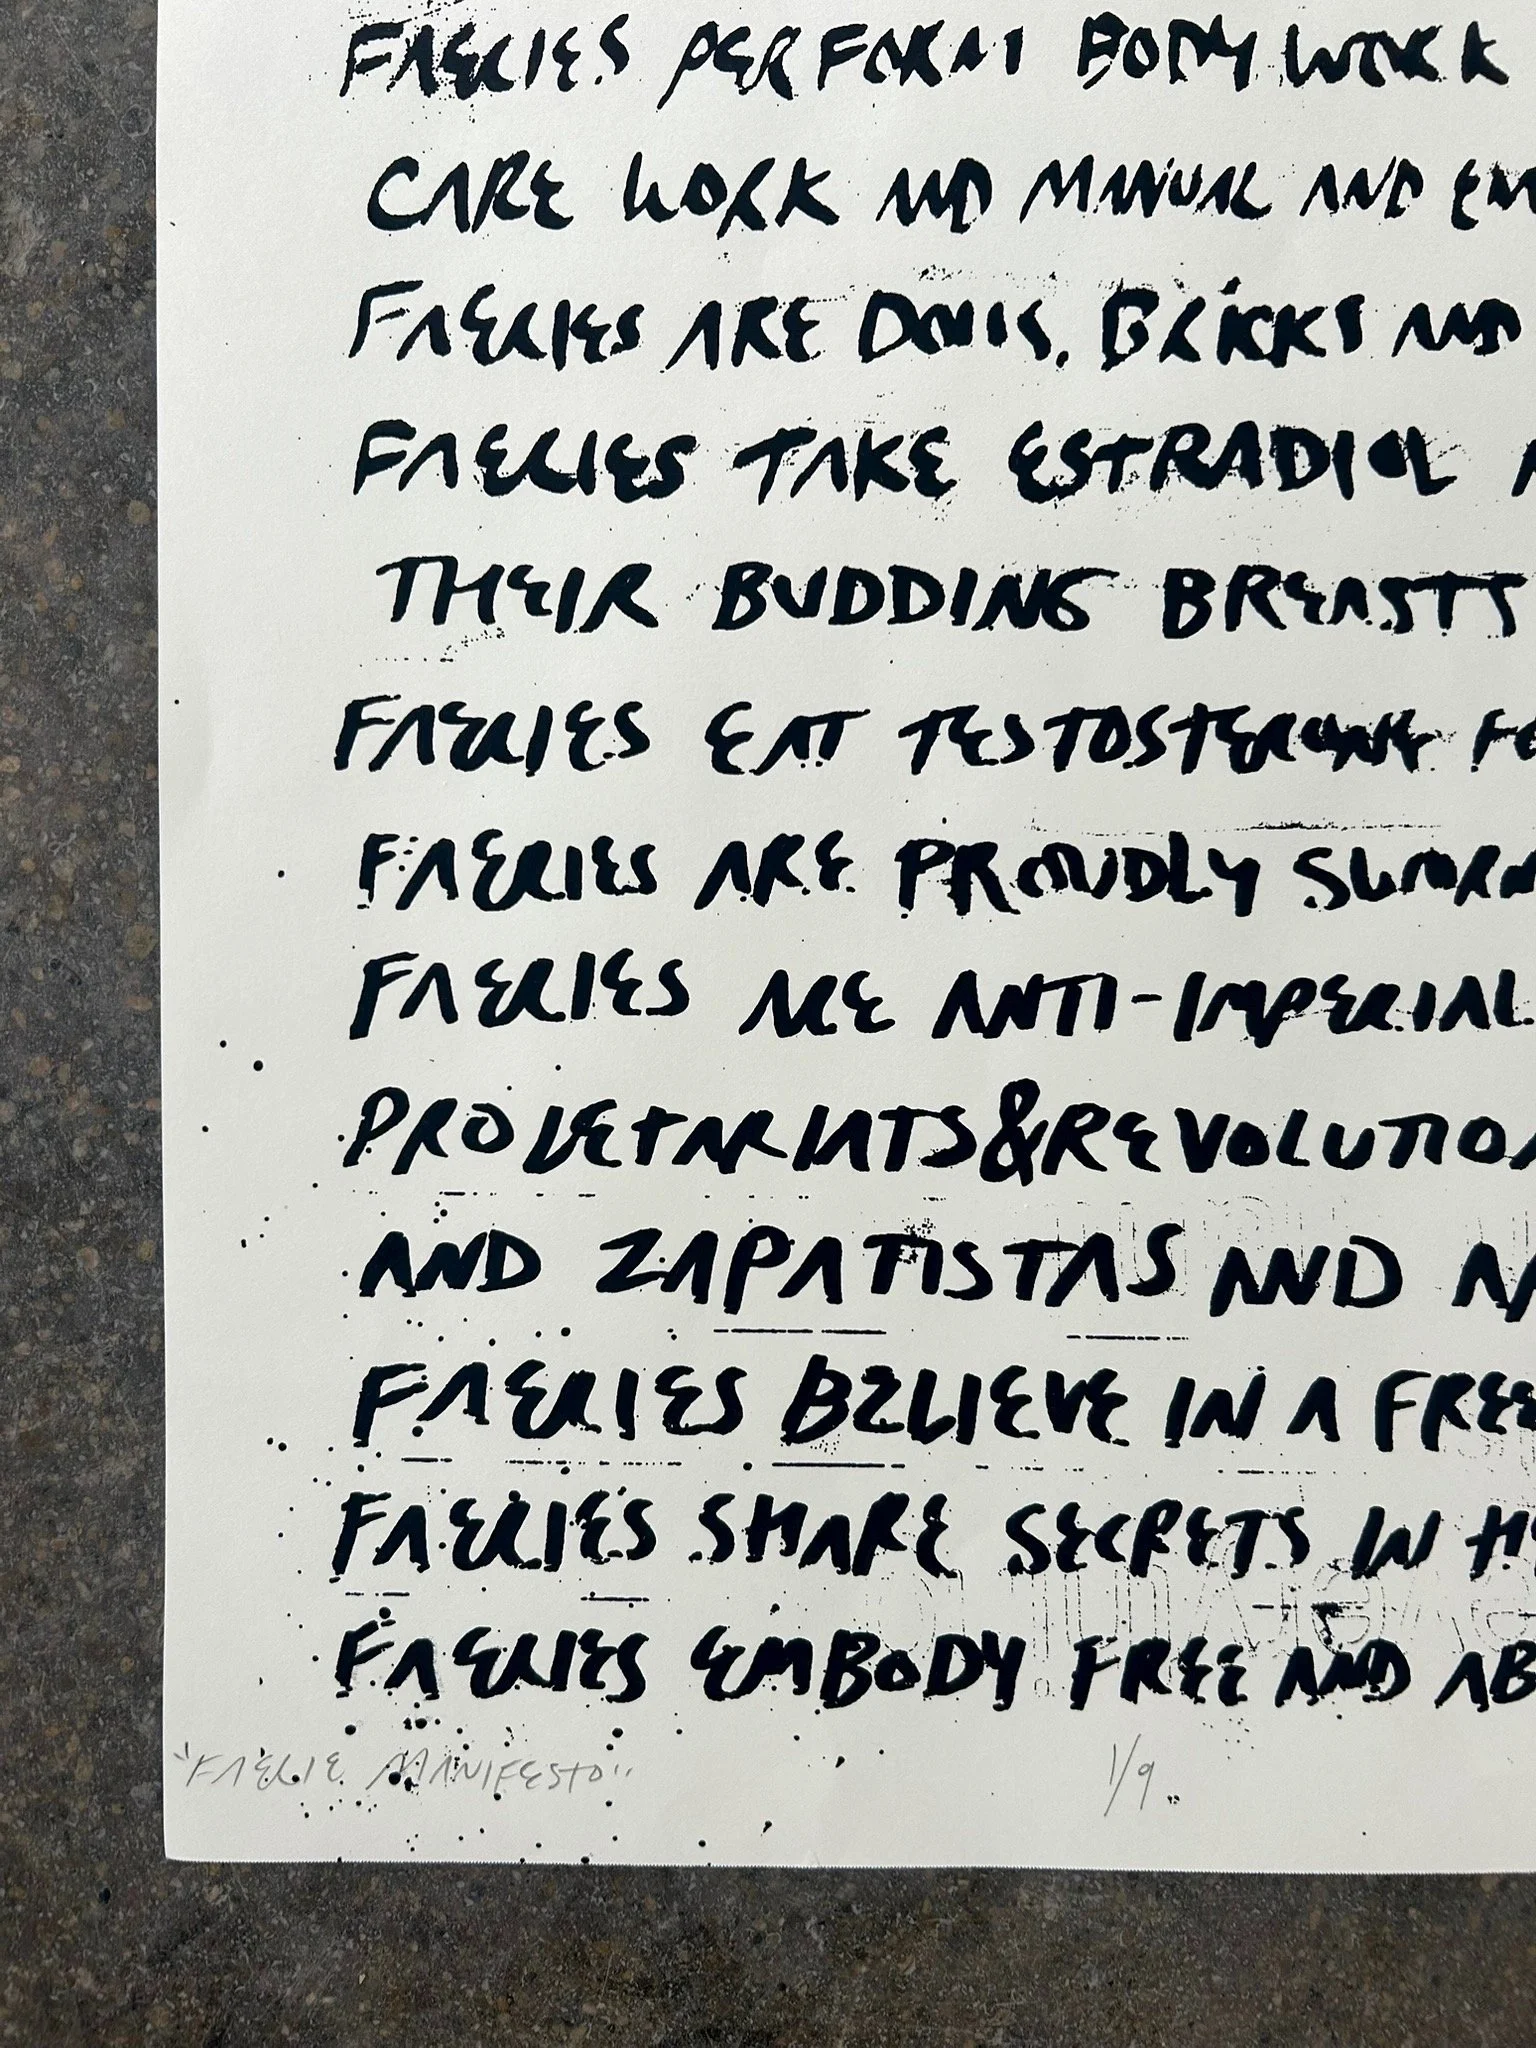 FAERIES PERFORM BODY WORK
CARE WORK AND MANUAL AND EM
FAERIES ARE DOLLS, BRICKS AND
FAERIES TAKE ESTRADIOL
THEIR BUDDING BREASTS
FAERIES EAT TESTOSTERONE FO
FAERIES ARE PROUDLY SWORN
FAERIES ARE ANTI-IMPERIAL
PROLETARIATS & REVOLUTION
AND ZAPATISTAS AND
FAERIES BELIEVE IN A FREE
FAERIES SHARE SECRETS IN
FAERIES EMBODY FREE AND AB
"FAERIE MANIFESTO" 1/9